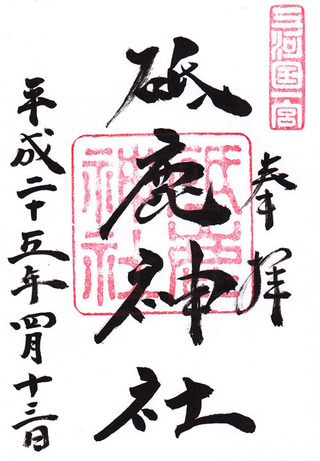 三河國一宮
奉拝
砥鹿神社
砥鹿神社
平成二十五年四月十三日